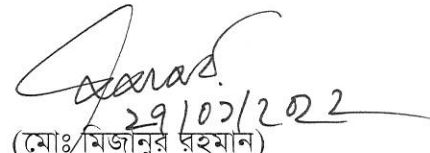 29/03/2022
(মোঃ মিজানুর রহমান)